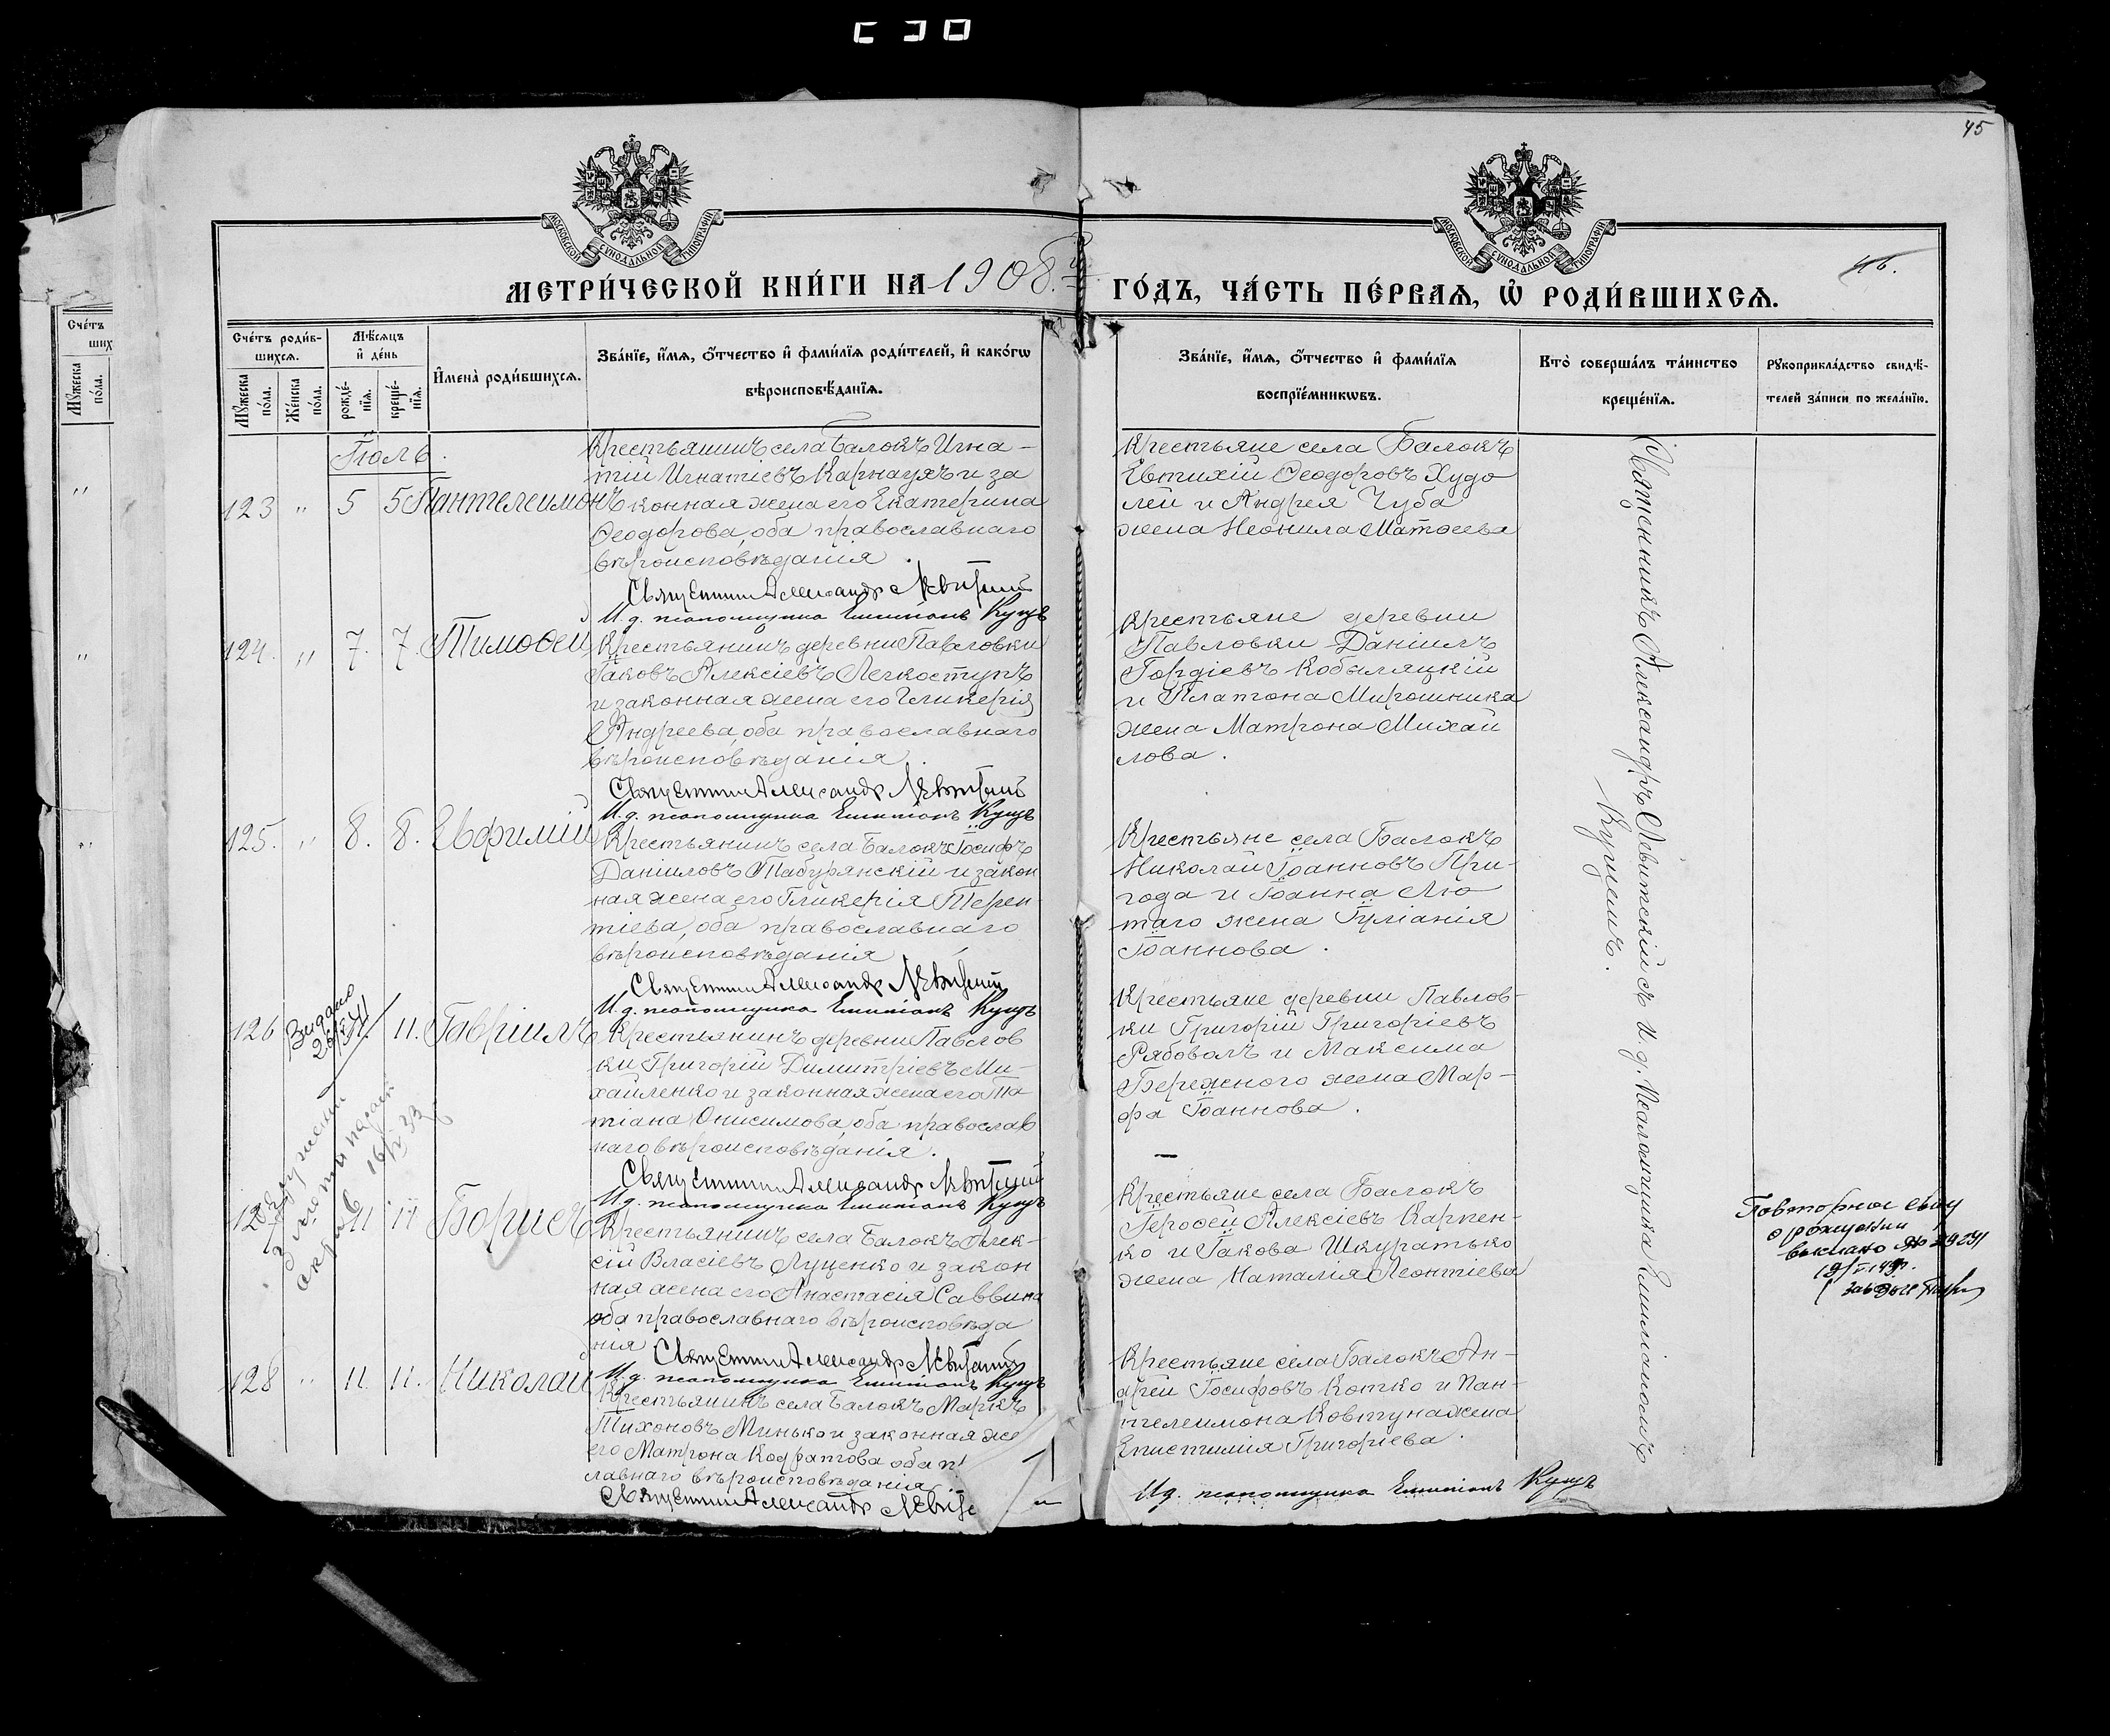 45
МОСКОВСКОЙ СѴНОДАЛЬНОЙ ТИПОГРАФІИ
МОСКОВСКОЙ СѴНОДАЛЬНОЙ ТИПОГРАФІИ
МЕТРИ́ЧЕСКОЙ КНИ́ГИ НА 1908.й ГО́ДЪ, ЧА́СТЬ ПЕ́РВАѦ, Ѡ РОДИ́ВШИХСѦ.
46.
Сче́тъ
ших
Мꙋ́жеска по́ла.
Сче́тъ роди́в-
шихсѧ.
Мꙋ́жеска по́ла.
Же́нска по́ла.
Мѣ́сѧцъ
и҆ де́нь
рожде́-
нїѧ.
креще́-
нїѧ.
И҆мена̀ роди́вшихсѧ.
Зва́нїе, и҆́мѧ, ѻ҆́тчество и҆ фами́лїѧ роди́телей, и҆ како́гѡ
вѣроисповѣ́данїѧ.
Зва́нїе, и҆́мѧ, ѻ҆́тчество и҆ фами́лїѧ
воспрїе́мникѡвъ.
Кто̀ соверша́лъ та́инство
креще́нїѧ.
Рꙋкоприкла́дство свидѣ́-
телей за́писи по жела́нїю.
Іюль.
123 " 5 5 Пантелеимонъ
Крестьянинъ села Балокъ Игна-
тій Игнатіевъ Карнаухъ и за
конная жена его Екатерина
Ѳеодорова, оба православнаго
вѣроисповѣданія.
Священникъ Александръ Левитскій
И. д. псаломщика Емиліанъ Куцъ
Крестьяне села Балокъ
Евтихій Ѳеодоровъ Худо
лей и Андрея Чуба
жена Неонила Матѳеева
124. " 7. 7. Тимоѳей
Крестьянинъ деревни Павловки
Іаковъ Алексіевъ Легкоступъ
и законная жена его Гликерія
Андреева, оба православнаго
вѣроисповѣданія.
Священникъ Александръ Левитскій
И. д. псаломщика Емиліанъ Куцъ
Крестьяне деревни
Павловки Даніилъ
Гордіевъ Кобыляцкій
и Платона Мирошника
жена Матрона Михай
лова.
125. " 8. 8. Евфимій
Крестьянинъ села Балокъ Іосифъ
Даніиловъ Табурянскій и закон
ная жена его Гликерія Терен
тіева, оба православнаго
вѣроисповѣданія
Священникъ Александръ Левитскій
И. д. псаломщика Емиліанъ Куцъ
Крестьяне села Балокъ
Николай Іоанновъ При-
года и Іоанна Лю
таго жена Іуліанія
Іоаннова.
126 11. Гавріилъ
Видано
Крестьянинъ деревни Павлов
ки Григорій Димитріевъ Ми-
хайленко и законная жена его Та
тіана Онисимова, оба православ
наго вѣроисповѣданія.
Священникъ Александръ Левитскій
И. д. псаломщика Емиліанъ Куцъ
Крестьяне деревни Павлов-
ки Григорій Григоріевъ
Рябоволъ и Максима
Бережного жена Мар-
фа Іоаннова.
127 11 11 Борисъ
Крестьянинъ села Балокъ Алек-
сій Власіевъ Луценко и закон
ная жена его Анастасія Саввина
оба православнаго вѣроисповѣда
нія
Священникъ Александръ Левитскій
И. д. псаломщика Емиліанъ Куцъ
Крестьяне села Балокъ
Іероѳей Алексіевъ Карпен-
ко и Іакова Шкуратько
жена Наталія Леонтіева
Повторное
о рождении
выслано
128 " 11. 11. Николай
Крестьянинъ села Балокъ Маркъ
Тихоновъ Минько и законная же
его Матрона Кодратова оба п
лавнаго вѣроисповѣданія
Священникъ Александръ
Крестьяне села Балокъ Ан-
дрей Іосифовъ Котко и Пан-
телеимона Ковтуна жена
Епистимія Григоріева.
И. д. псаломщика Емиліанъ Куцъ
Священникъ Александръ Левитскій съ И. д. Псаломщика Емиліаномъ
Куцемъ.